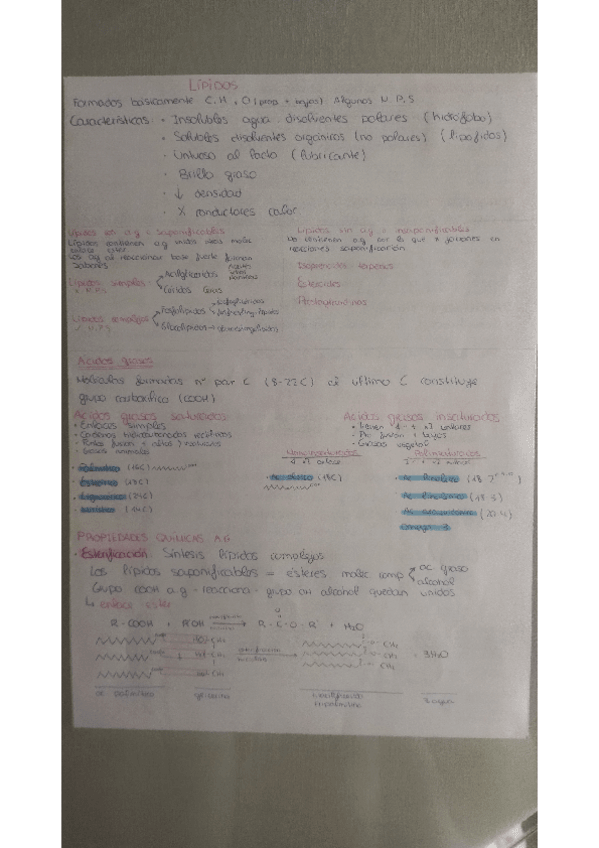 LÍPIDOS
Formados básicamente C, H, O (prop + bajas) Algunos N, P, S
Características: · Insolubles agua disolventes polares (hidrófobo)
· Solubles disolventes orgánicos (no polares) (lipófidos)
· Untuoso al tacto (lubricante)
· Brillo graso
· ↓ densidad
· X conductores calor
Lípidos con a.g = saponificables
Lípidos contienen a.g unidos
enlace éster
Los ag al reaccionar base fuerte forman
jabones
Lípidos simples
Acilglicéridos
Céridos
Lípidos complejos
Fosfolípidos
Glucolípidos
Lípidos sin a.g = insaponificables
No contienen a.g por lo que X jabones en
reacciones saponificación
Isoprenoides terpenos
Esteroides
Prostaglandinas
Ácidos grasos
Moléculas formadas nº par C (8-22C) el último C constituye
grupo carboxílico (COOH)
Ácidos grasos saturados
· Enlaces simples
· Cadenas hidrocarbonadas
· Grasas animales
· Palmítico (16C)
· Esteárico (18C)
· Lignocérico (24C)
· Mirístico (14C)
Ácidos grasos insaturados
· Pto fusión + bajos
· Grasas vegetal
Monoinsaturados
· Ac oleico (18C)
Poliinsaturados
· Ac linoleico (18:2)
Ac linolénico (18:3)
Ac araquidónico (20:4)
omega 3
PROPIEDADES QUÍMICAS A.G
· Esterificación Síntesis lípidos complejos
Los lípidos saponificables = ésteres moléc comp
ac graso
alcohol
Grupo COOH a.g - reacciona - grupo OH alcohol quedan unidos
↳ enlace éster
R-COOH + R'OH → R-C-O-R + H₂O
3H₂O
ac palmítico
glicerina
3 agua